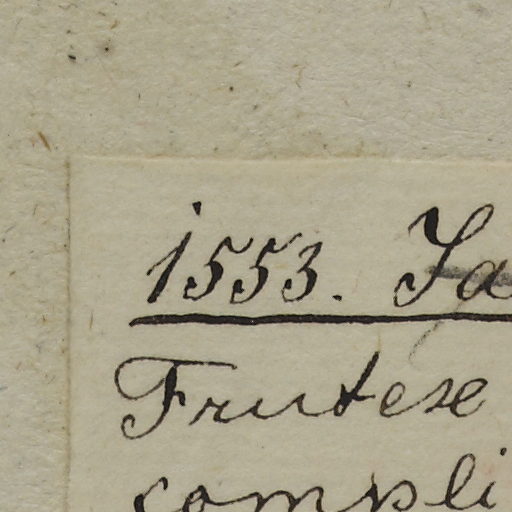 1553. Ja
Frutex
compli